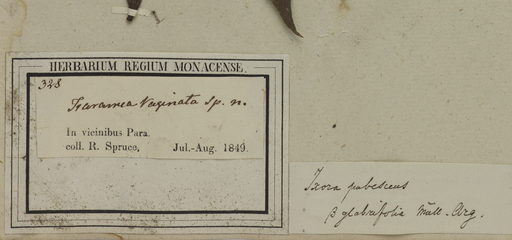 HERBARIUM REGIUM MONACENSE.
328
Faramea Vaginata sp. n.
In vicinibus Para.
coll. R. Spruce,     Jul.-Aug. 1849.
Ixora pubescens
β glabrifolia Müll. Arg.